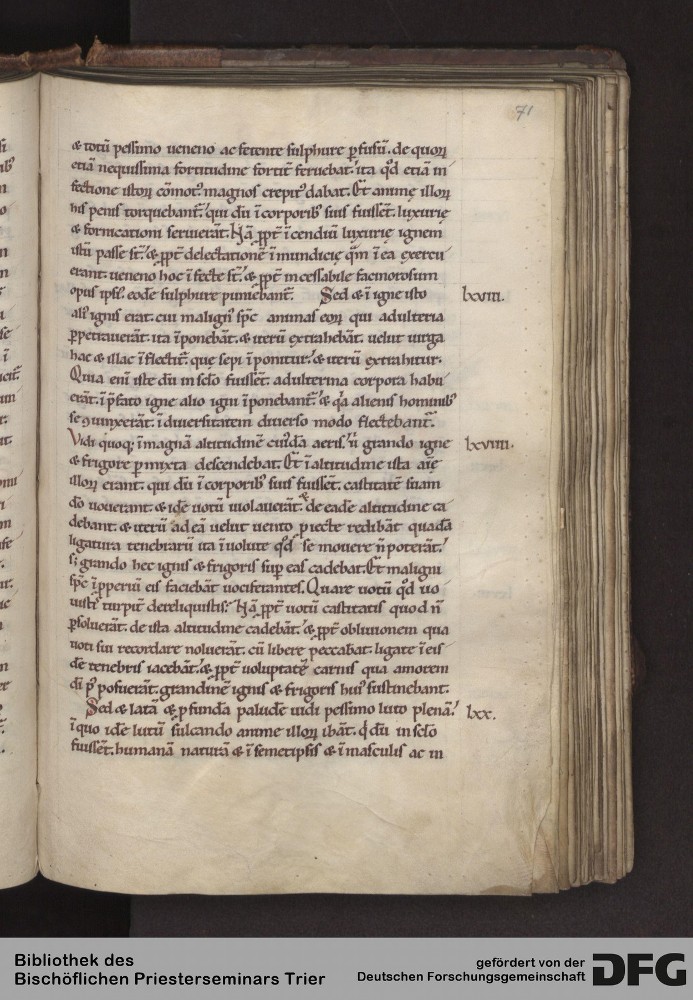 71
& totū pessimo ueneno ac fetente sulphure ꝑfusū. de quoꝝ
etiā nequissima fortitudine fortit̄ feruebat. ita qd̄ etiā in
fectione istoꝝ cōmotꝰ magnos crepitꝰ dabat. Et animę illoꝝ
his penis torquebant̄. qui dū ī corporibꝰ suis fuissēt. luxurię
& fornicationi seruierāt. Nā ꝓpt̄ īcendiū luxurię ignem
istū passe st̄. & ꝓpt̄ delectationē īmundicię qm̄ ī ea exercu
erant. ueneno hoc īfecte st̄. & ꝓpt̄ incessabile facinorosum
opus ipsꝰ. eodē sulphure puniebant̄. Sed & ī igne isto
lxviii.
alꝰ ignis erat. cui malignꝰ spc̄ animas eoꝝ qui adulteria
ꝑpetrauerāt. ita īponebāt. & iterū extrahebāt. uelut uirga
hac & illac īflectit̄. que sepi īponitur. & iterū extrahitur.
Quia eni iste dū in sclo fuissēt. adulterina corpora habu
erāt. ī p̄fato igne alio igni īponebant̄. & qa alienis hominibꝰ
se ꝯiunxerāt. ī diuersitatem diuerso modo flectebant̄.
Vidi quoqꝫ ī magnā altitudinē cuiꝰdā aeris. ī q̄ grando igne
lxviiii.
& frigore ꝑmixta descendebat. Et ī altitudine ista aīe
illoꝝ erant. qui dū ī corporibꝰ suis fuissēt. castitatē suam
dō uouerant. & idē uotū uiolauerāt. & de eadē altitudine ca
debant. & iterū ad eā uelut uento ꝓiecte redibāt quadā
ligatura tenebrarū ita īuolute qd̄ se mouere n̄ poterāt.
sꝫ grando hec ignis & frigoris suꝑ eas cadebat. Et maligni
spc̄ īpperiū eis faciebāt uociferantes. Quare uotū qd̄ uo
uistꝭ turpit̄ dereliquistis. Nā ꝓpt̄ uotū castitatis quod n̄
ꝑsoluerāt. de ista altitudine cadebāt. & ꝓpt̄ obliuionem qua
uoti sui recordare noluerāt. cū libere peccabāt. ligate ī eis
dē tenebris iacebāt. & ꝓpt̄ voluptatē carnis qua amorem
di pꝰposuerāt. grandinē ignis & frigoris huiꝰ sustinebant.
Sed & latā & ꝓfundā paludē uidi pessimo luto plenā.
lxx.
ī quo idē lutū sulcando anime illoꝝ ibāt. q̇ dū in sclo
fuissēt. humanā naturā & ī semetipsis & ī masculis ac in
Bibliothek des
Bischöflichen Priesterseminars Trier
gefördert von der
Deutschen Forschungsgemeinschaft
DFG